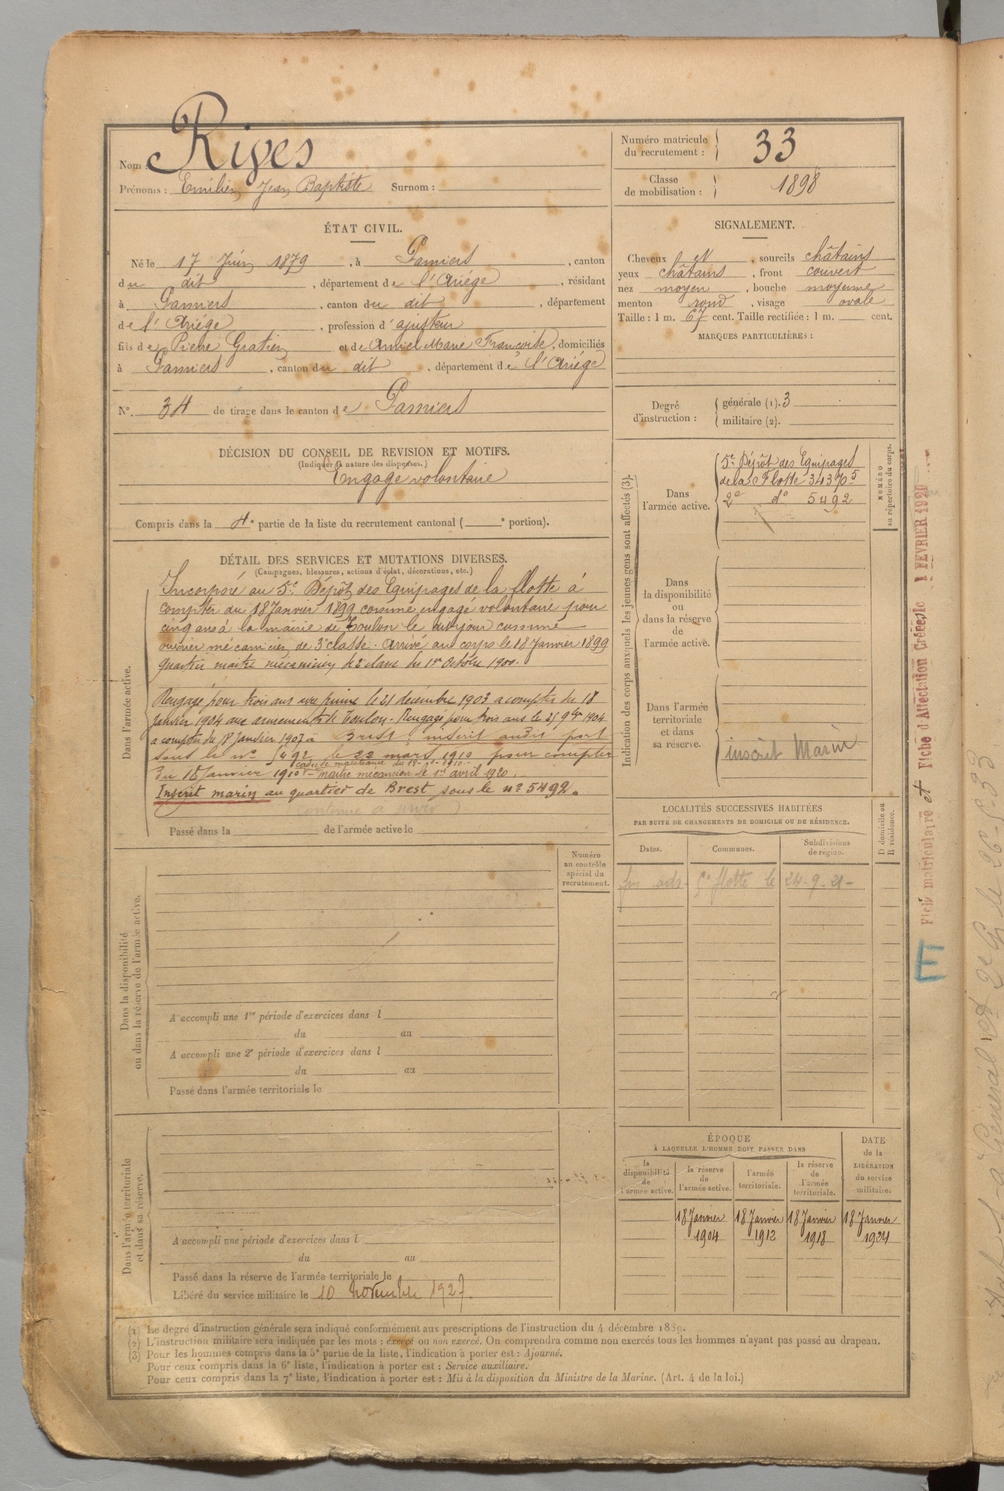 Nom Rives
Prénoms : Emilien Jean Baptiste Surnom :
Numéro matricule du recrutement : 33
Classe de mobilisation : 1898
ÉTAT CIVIL.
Né le 17 Juin 1879, à Pamiers, canton
du dit, département de l'Ariége, résidant
à Pamiers, canton du dit, département
de l'Ariége, profession d'ajusteur
fils de Pierre Gratien et de Amiel Marie Françoise, domiciliés
à Pamiers, canton du dit, département de l'Ariége
N° 34 de tirage dans le canton de Pamiers
SIGNALEMENT.
Cheveux et, sourcils châtains
yeux châtains, front couvert
nez moyen, bouche moyenne
menton rond, visage ovale
Taille : 1 m. 67 cent. Taille rectifiée : 1 m. cent.
MARQUES PARTICULIÈRES :
Degré d'instruction :
générale (1). 3
militaire (2).
DÉCISION DU CONSEIL DE REVISION ET MOTIFS.
(Indiquer la nature des dispenses.)
Engagé volontaire
Compris dans la 4e partie de la liste du recrutement cantonal ( e portion).
DÉTAIL DES SERVICES ET MUTATIONS DIVERSES.
(Campagnes, blessures, actions d'éclat, décorations, etc.)
Dans l'armée active.
Incorporé au 5e Dépôt des Equipages de la flotte à
compter du 18 Janvier 1899 comme engagé volontaire pour
cinq ans à la mairie de Toulon le dit jour comme
ouvrier mécanicien de 3e classe. Arrivé au corps le 18 Janvier 1899
quartier maître mécanicien de 2e classe du 1er Octobre 1900.
Rengagé pour trois ans avec prime le 21 decembre 1903 a compter du 18
Janvier 1904 aux armements de Toulon. Rengagé pour trois ans le
a compter du 18 Janvier 1907 à Brest. inscrit audit port
sous le no 5492 le 22 mars 1910 pour compter
du 18 janvier 1910 - maître mécanicien le 1er avril 1920.
cadre de maistrance du
Inscrit marin au quartier de Brest sous le no 5492.
Passé dans la de l'armée active le
Indication des corps auxquels les jeunes gens sont affectés (3).
Dans l'armée active.
5e Dépôt des Equipages
de la Flotte 34370 5
2e do 5492
NUMÉRO au répertoire du corps.
Dans la disponibilité ou dans la réserve de l'armée active.
Dans l'armée territoriale et dans sa réserve.
inscrit Marin
LOCALITÉS SUCCESSIVES HABITÉES
PAR SUITE DE CHANGEMENTS DE DOMICILE OU DE RÉSIDENCE.
Dates. Communes. Subdivisions de région. D domicile ou R résidence.
5e flotte le 24-9-21-
Numéro au contrôle spécial du recrutement.
Dans la disponibilité ou dans la réserve de l'armée active.
A accompli une 1re période d'exercices dans l
du au
A accompli une 2e période d'exercices dans l
du au
Passé dans l'armée territoriale le
Dans l'armée territoriale et dans sa réserve.
A accompli une période d'exercices dans l
du au
Passé dans la réserve de l'armée territoriale le
Libéré du service militaire le 10 novembre 1927.
ÉPOQUE
À LAQUELLE L'HOMME DOIT PASSER DANS
DATE de la LIBÉRATION du service militaire.
la disponibilité de l'armée active.
la réserve de l'armée active.
l'armée territoriale.
la réserve de l'armée territoriale.
18 Janvier 1904
18 Janvier 1912
18 Janvier 1918
18 Janvier 1924
(1) Le degré d'instruction générale sera indiqué conformément aux prescriptions de l'instruction du 4 décembre 1889.
(2) L'instruction militaire sera indiquée par les mots : exercé ou non exercé. On comprendra comme non exercés tous les hommes n'ayant pas passé au drapeau.
(3) Pour les hommes compris dans la 5e partie de la liste, l'indication à porter est : Ajourné.
Pour ceux compris dans la 6e liste, l'indication à porter est : Service auxiliaire.
Pour ceux compris dans la 7e liste, l'indication à porter est : Mis à la disposition du Ministre de la Marine. (Art. 4 de la loi.)
Fiche matriculaire et Fiche d'Affectation Créées le 1 FEVRIER 1920
E